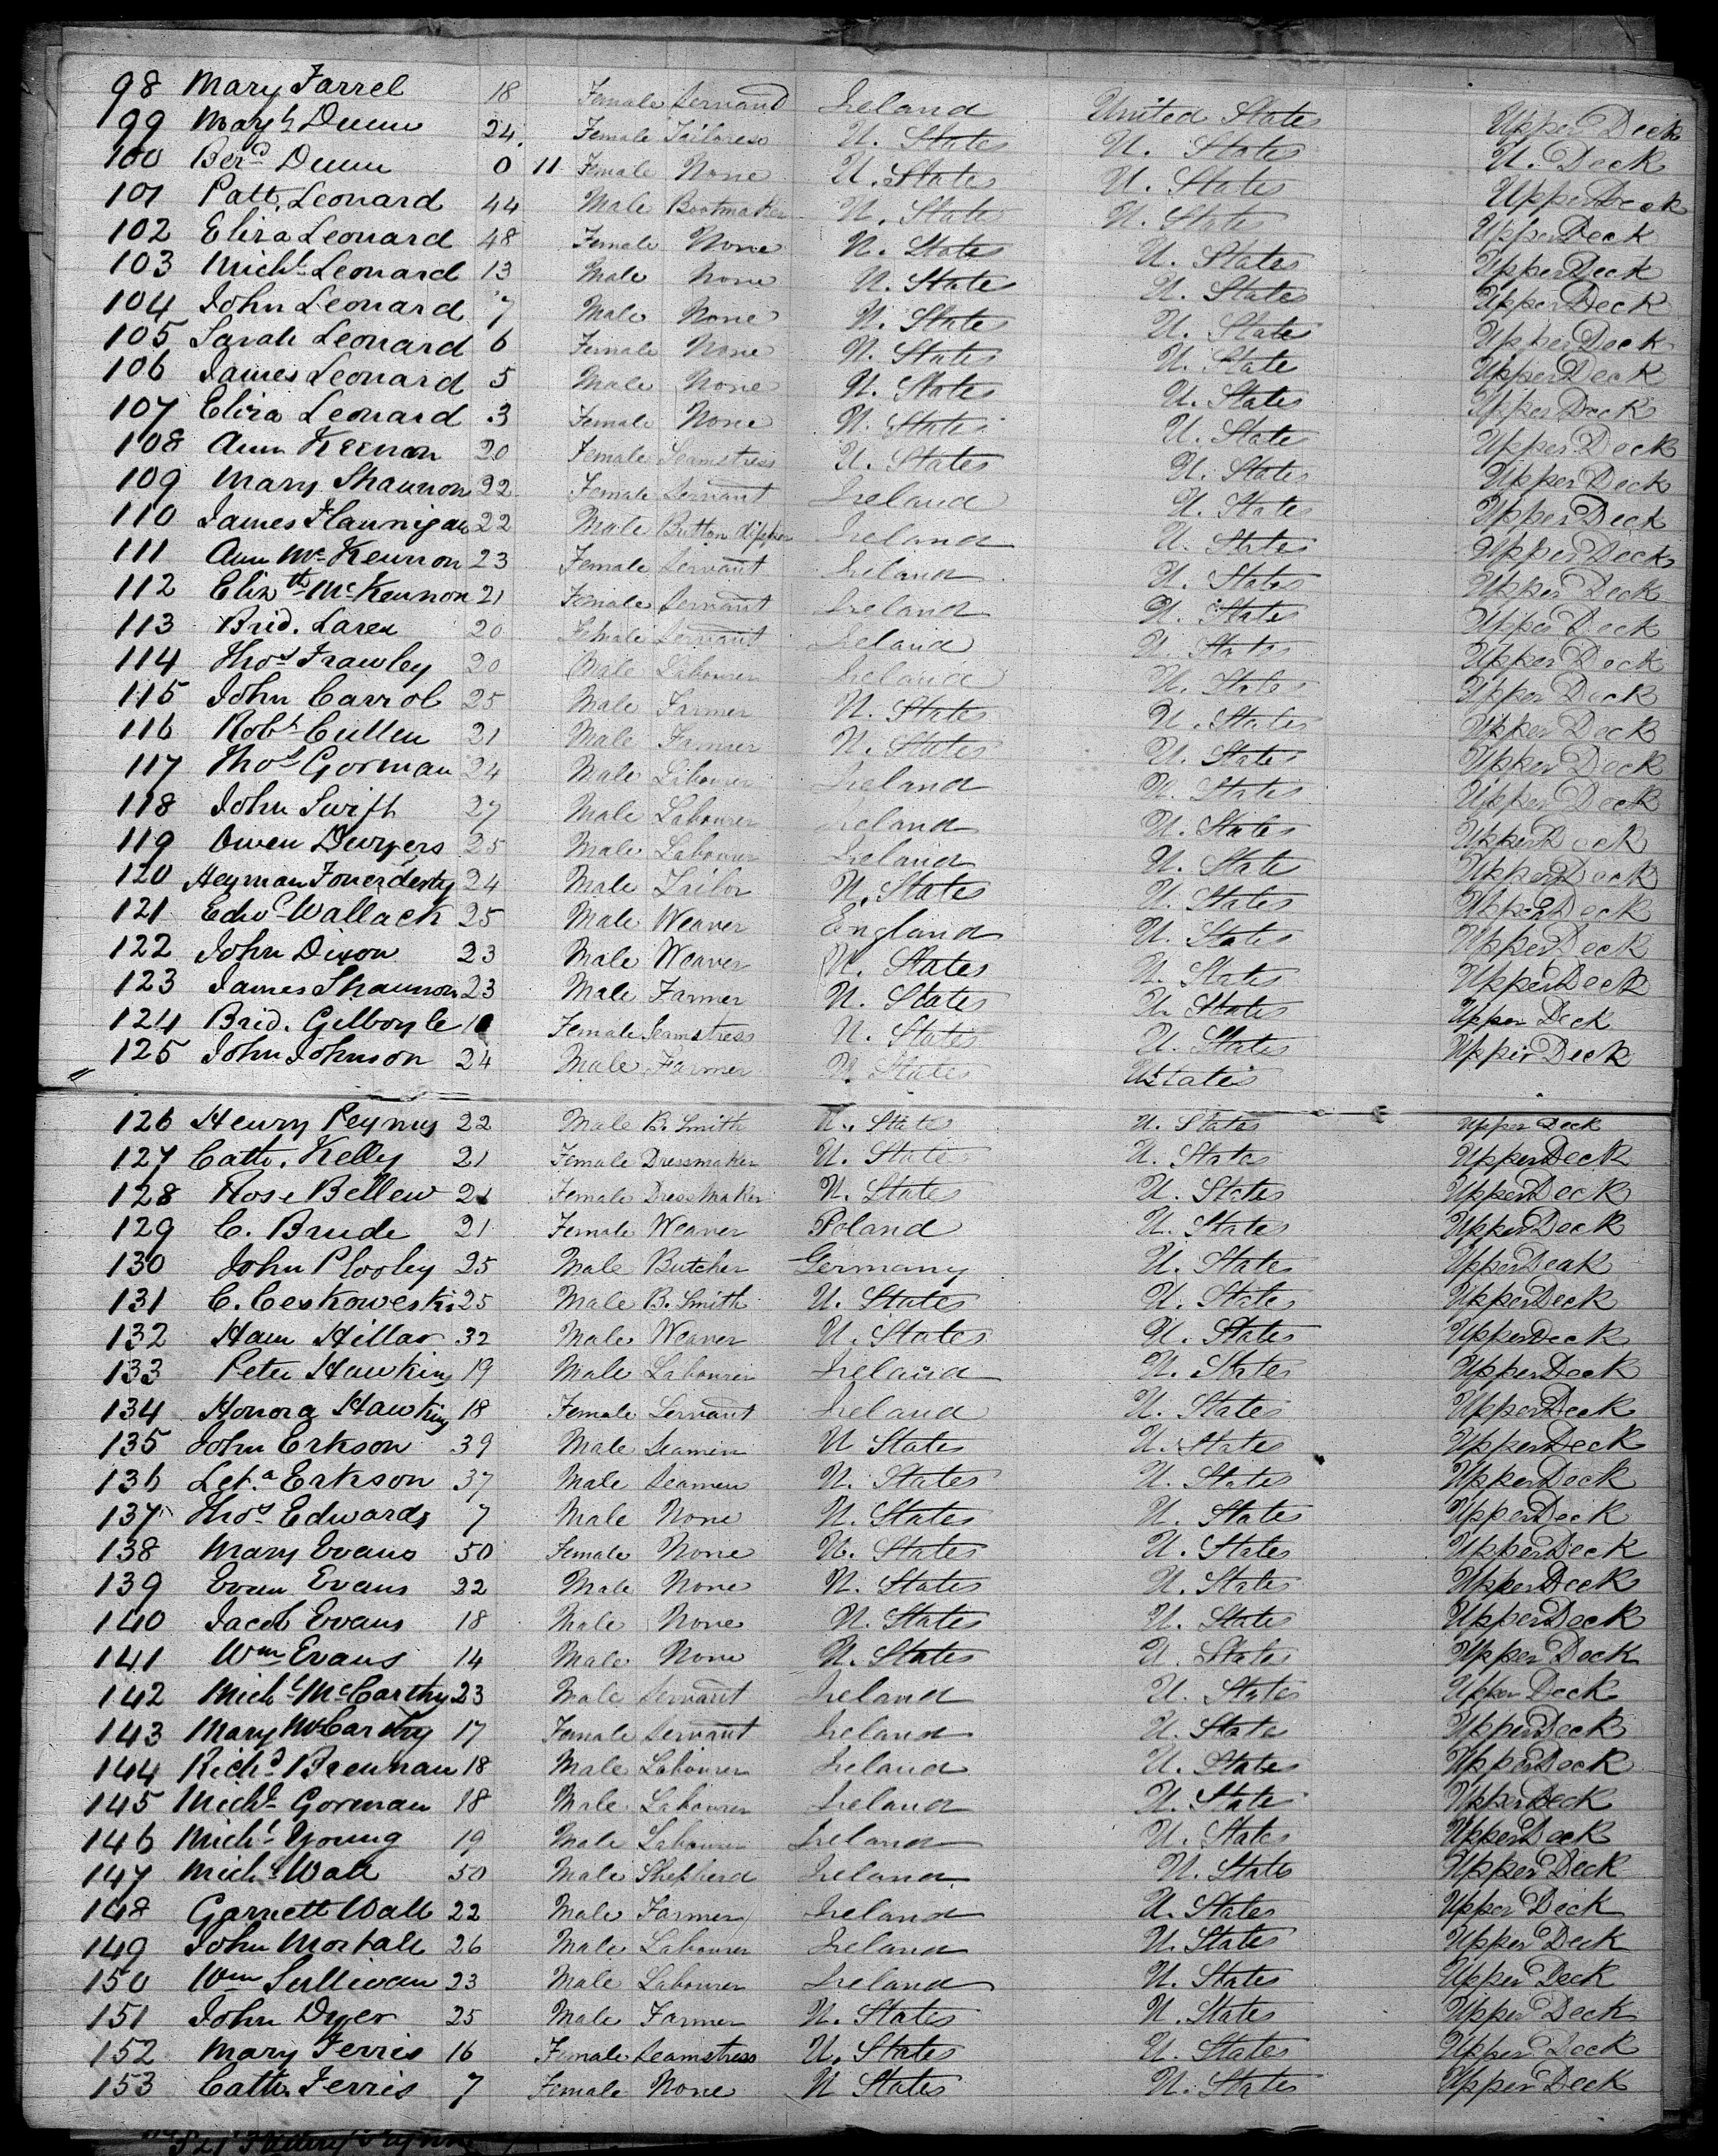 98 Mary Farrel 18 Female Servant Ireland United States Upper Deck
99 Mary Dunn 24 Female Tailoress U. States U. States U. Deck
100 Berd Dunn 0 11 Female None U. States U. States Upper Deck
101 Patt. Leonard 44 Male Bootmaker U. States U. States Upper Deck
102 Eliza Leonard 48 Female None U. States U. States Upper Deck
103 Michl Leonard 13 Male None U. States U. States Upper Deck
104 John Leonard 7 Male None U. States U. States Upper Deck
105 Sarah Leonard 6 Female None U. States U. State Upper Deck
106 James Leonard 5 Male None U. States U. States Upper Deck
107 Eliza Leonard 3 Female None U. States U. State Upper Deck
108 Ann Kernon 20 Female Seamstress U. States U. States Upper Deck
109 Mary Shannon 22 Female Servant Ireland U. States Upper Deck
110 James Flannigan 22 Male Button Ireland U. States Upper Deck
111 Ann McKennon 23 Female Servant Ireland U. States Upper Deck
112 Elizth McKennon 21 Female Servant Ireland U. States Upper Deck
113 Brid. 20 Female Servant Ireland U. States Upper Deck
114 Thos Frawley 20 Male Labourer Ireland U. States Upper Deck
115 John Carrol 25 Male Farmer U. States U. States Upper Deck
116 Robt Cullen 21 Male Farmer U. States U. States Upper Deck
117 Thos Gorman 24 Male Labourer Ireland U. States Upper Deck
118 John Swift 27 Male Labourer Ireland U. States Upper Deck
119 Owen Dwyers 25 Male Labourer Ireland U. State Upper Deck
120 Heyman 24 Male Tailor U. States U. States Upper Deck
121 Edwd Wallack 25 Male Weaver England U. States Upper Deck
122 John Dixon 23 Male Weaver U. States U. States Upper Deck
123 James Shannon 23 Male Farmer U. States U. States Upper Deck
124 Brid. Gilboyle Female Seamstress U. States U. States Upper Deck
125 John Johnson 24 Male Farmer U. States U States Upper Deck
126 Henry 22 Male B. Smith U. States U. States Upper Deck
127 Cath. Kelly 21 Female Dressmaker U. States U. States Upper Deck
128 Rose Bellew 21 Female Dressmaker U. States U. States Upper Deck
129 C. Brude 21 Female Weaver Poland U. States Upper Deck
130 John Plooley 25 Male Butcher Germany U. States Upper Deck
131 C. Ceskoweski 25 Male B. Smith U. States U. States Upper Deck
132 Ham Hillar 32 Male Weaver U. States U. States Upper Deck
133 Peter Hawkins 19 Male Labourer Ireland U. States Upper Deck
134 Honora Hawkins 18 Female Servant Ireland U. States Upper Deck
135 John Erkson 39 Male Seamen U States U. States Upper Deck
136 Erkson 37 Male Seamen U. States U. States Upper Deck
137 Thos Edwards 7 Male None U. States U. States Upper Deck
138 Mary Evans 50 Female None U. States U. States Upper Deck
139 Evan Evans 22 Male None U. States U. States Upper Deck
140 Jacob Evans 18 Male None U. States U. States Upper Deck
141 Wm Evans 14 Male None U. States U. States Upper Deck
142 Michl McCarthy 23 Male Servant Ireland U. States Upper Deck
143 Mary McCarthy 17 Female Servant Ireland U. State Upper Deck
144 Richd Brennan 18 Male Labourer Ireland U. States Upper Deck
145 Michl Gorman 18 Male Labourer Ireland U. State Upper Deck
146 Michl Young 19 Male Labourer Ireland U. States Upper Deck
147 Michl Wall 50 Male Shepherd Ireland U. State Upper Deck
148 Garnett Wall 22 Male Farmer Ireland U. States Upper Deck
149 John Mortall 26 Male Labourer Ireland U. States Upper Deck
150 Wm Sullivan 23 Male Labourer Ireland U. States Upper Deck
151 John Dyer 25 Male Farmer U. States U. States Upper Deck
152 Mary Ferris 16 Female Seamstress U. States U. States Upper Deck
153 Cath Ferris 7 Female None U States U. States Upper Deck